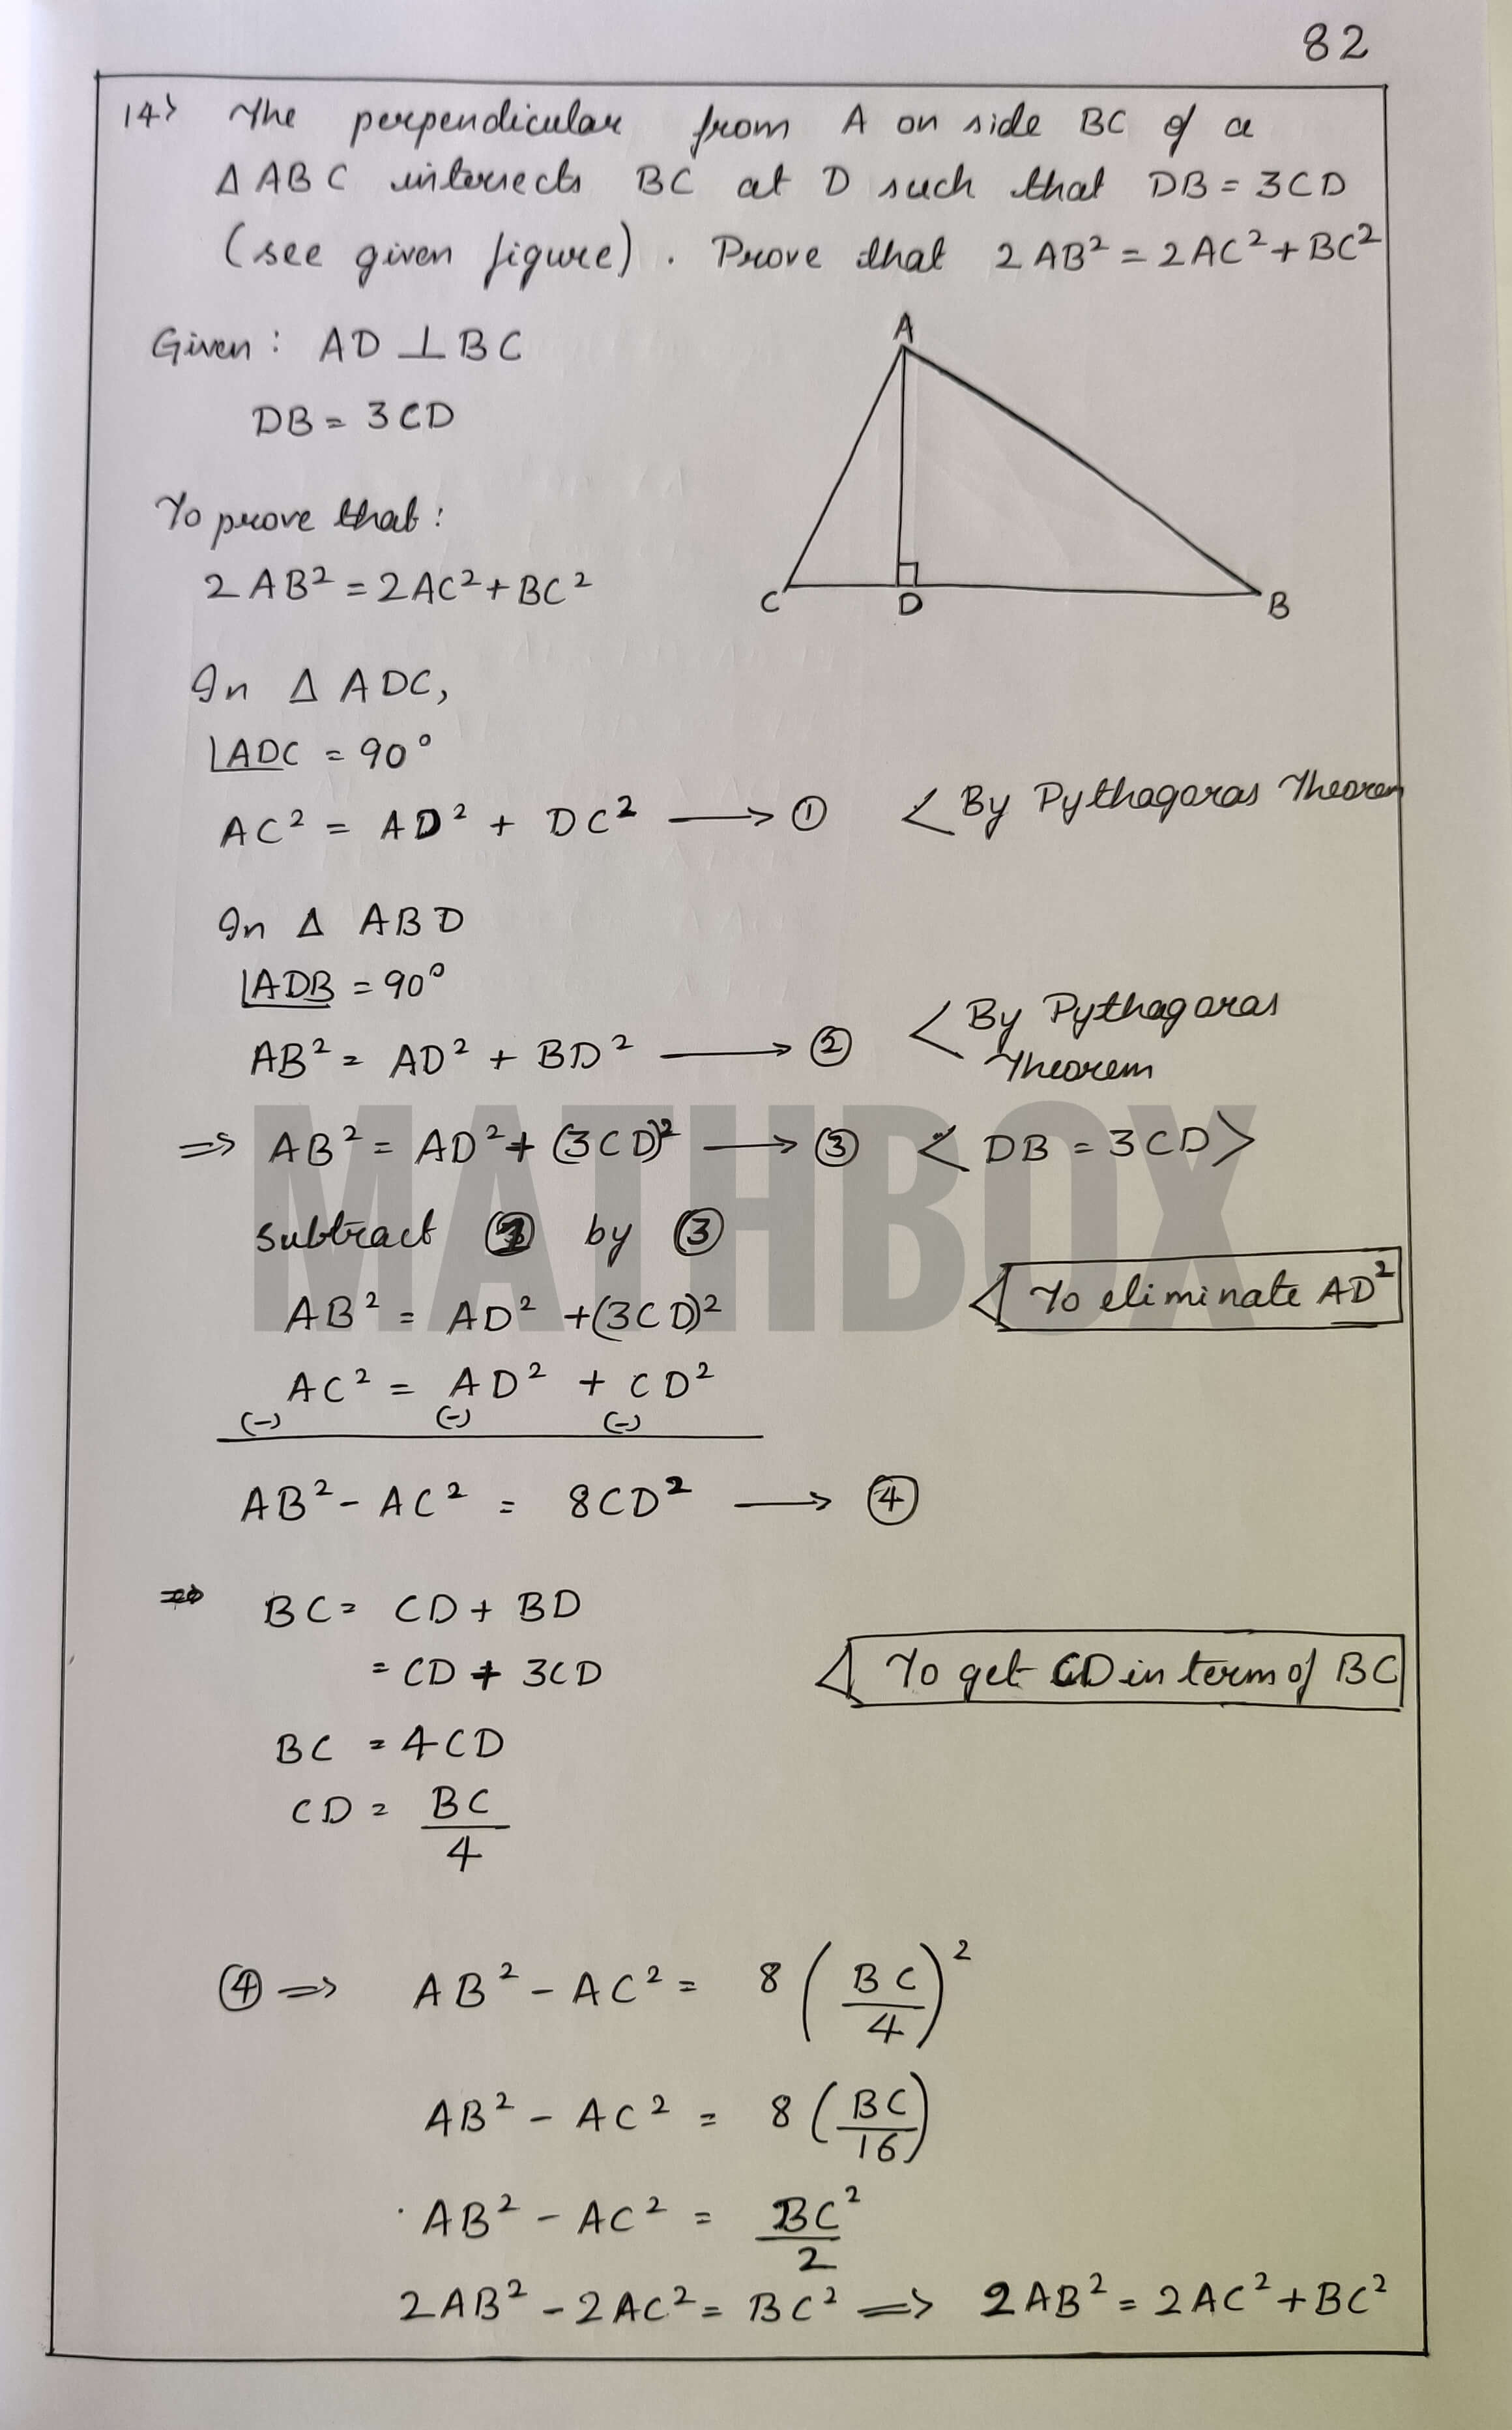 82
14> The perpendicular from A on side BC of a
Δ ABC intersects BC at D such that DB = 3CD
(see given figure). Prove that 2AB² = 2AC² + BC²
Given: AD ⊥ BC
DB = 3CD
To prove that:
2AB² = 2AC² + BC²
A
C D B
In Δ ADC,
∠ADC = 90°
AC² = AD² + DC² → ① < By Pythagoras Theorem
In Δ ABD
∠ADB = 90°
AB² = AD² + BD² → ② < By Pythagoras
Theorem
⇒ AB² = AD² + (3CD)² → ③ < DB = 3CD >
subtract ① by ③
To eliminate AD²
AB² = AD² + (3CD)²
AC² = AD² + CD²
(-) (-) (-)
AB² - AC² = 8CD² → ④
⇒ BC = CD + BD
= CD + 3CD
To get CD in term of BC
BC = 4CD
CD = BC/4
④ ⇒ AB² - AC² = 8(BC/4)²
AB² - AC² = 8(BC/16)
AB² - AC² = BC²/2
2AB² - 2AC² = BC² ⇒ 2AB² = 2AC² + BC²
MATHBOX